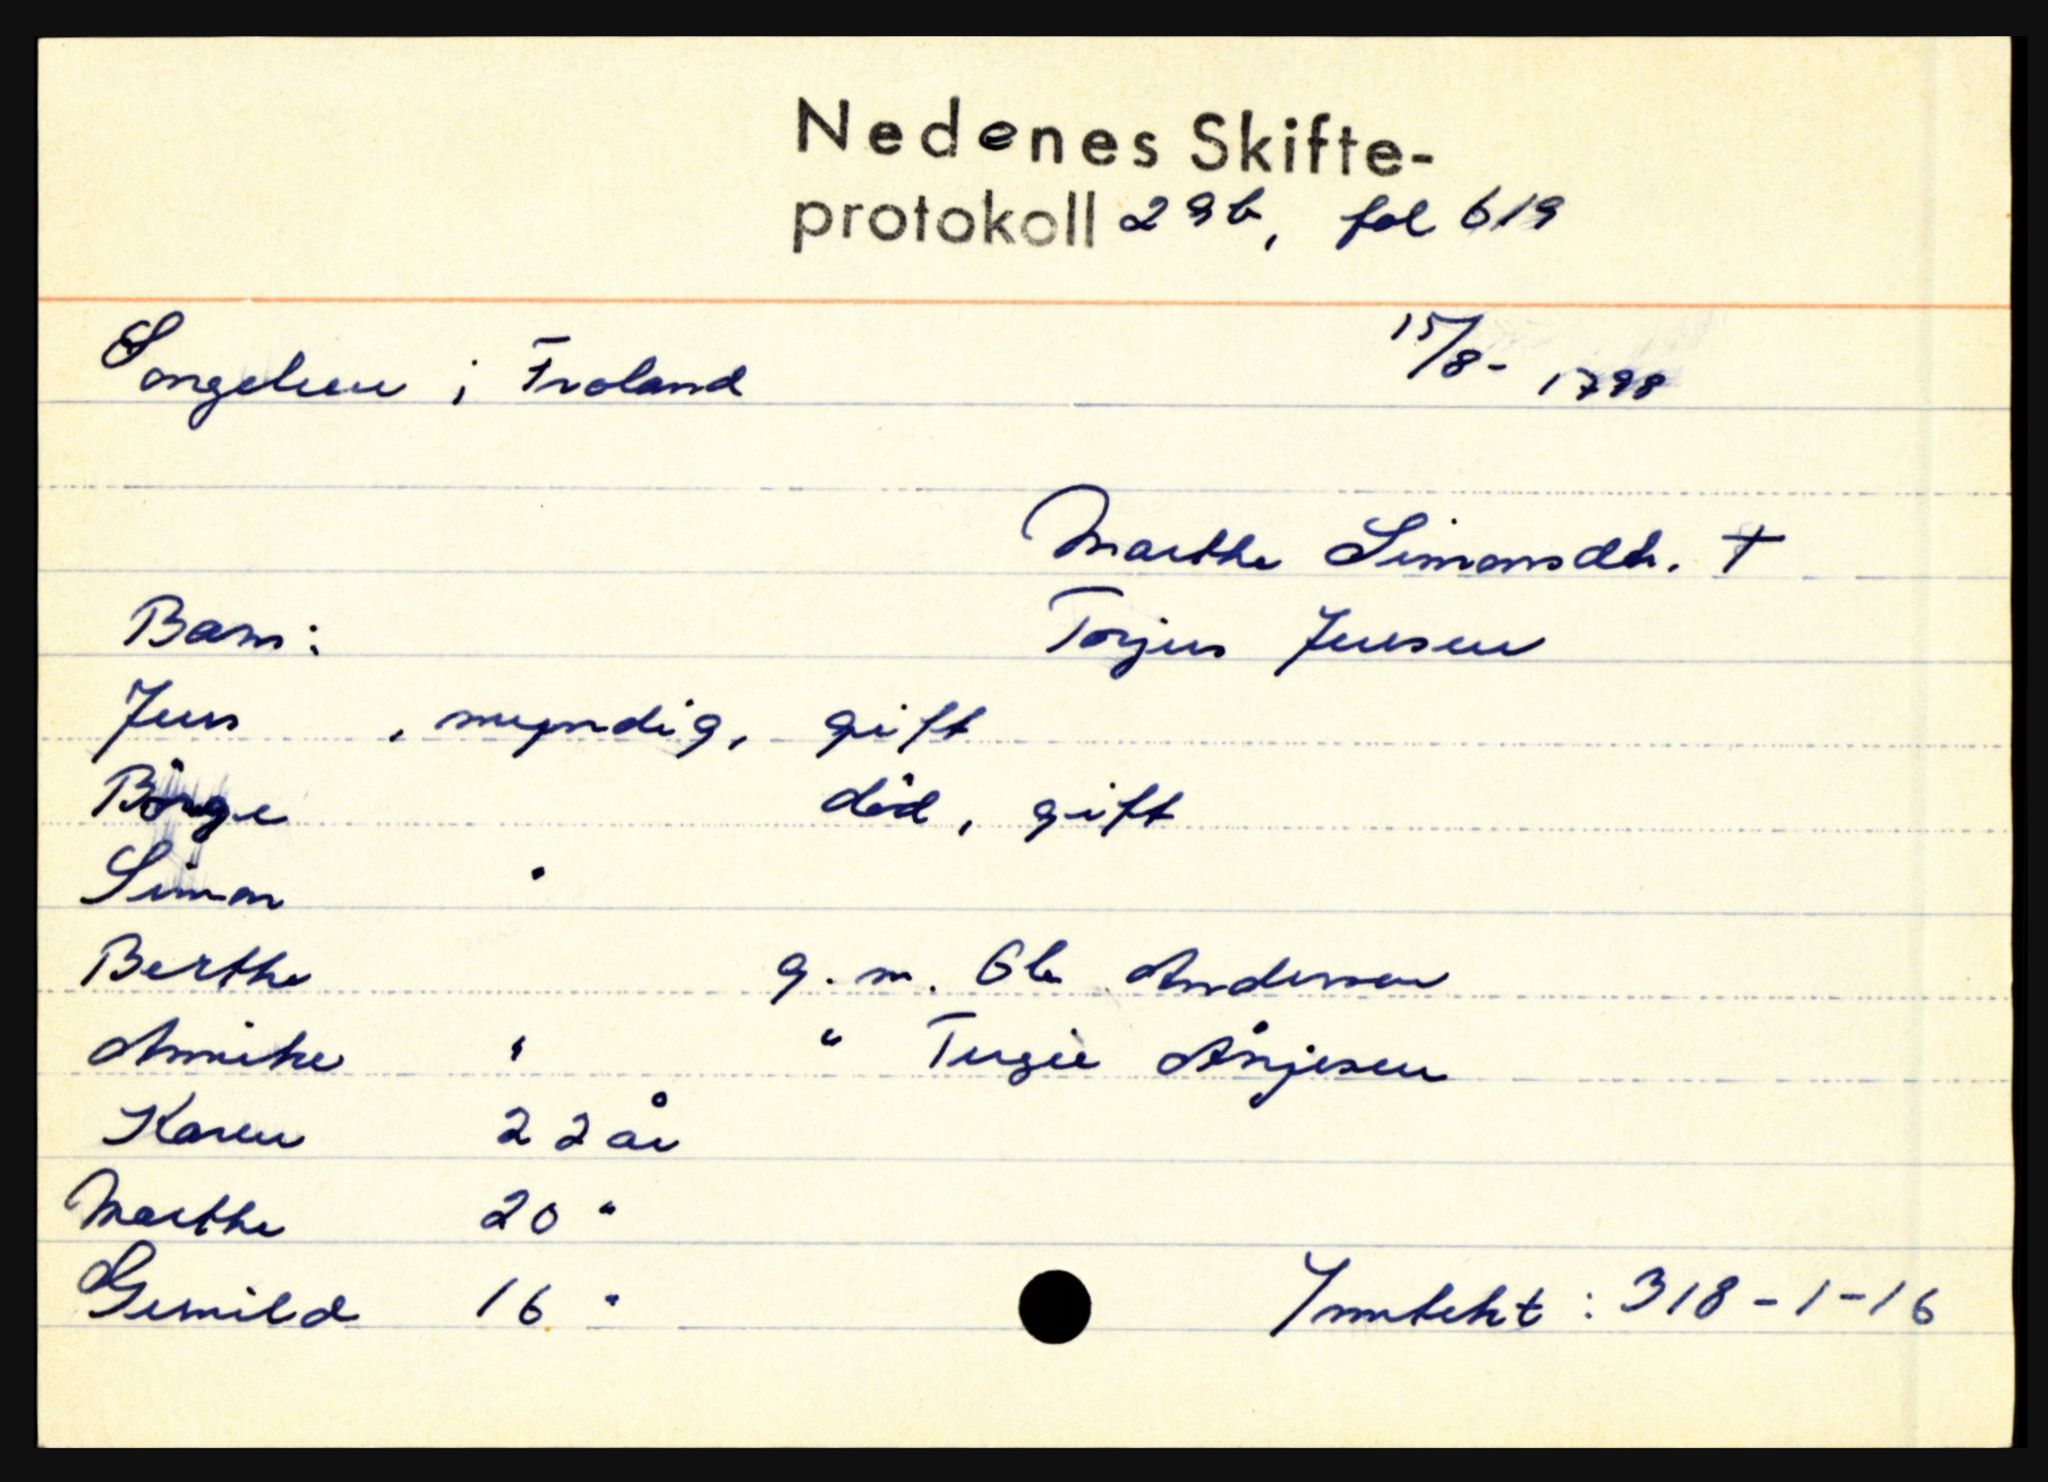 Nedenes Skifte-
protokoll 29b, fol 619
Songeluu i Froland 15/8- 1798
Marthe Simonsdtr. †
Barn: Torjus Jensen
Jens , myndig, gift
Börge död, gift
Simon "
Berthe g. m. Ole Andersen
Annike " " Tergie Ånjesen
Karen 22 år
Marthe 20 "
Gunild 16 "
Inntekt : 318-1-16